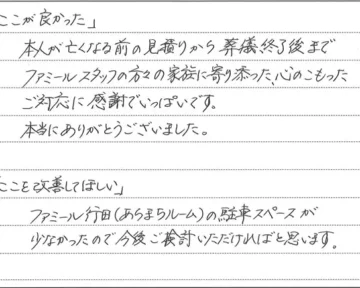 ここが良かった」
本人が亡くなる前の見積りから葬儀終了後まで
ファミールスタッフの方々の家族に寄り添った、心のこもった
ご対応に感謝でいっぱいです。
本当にありがとうございました。
ここを改善してほしい」
ファミール行田(あらまちルーム)の駐車スペースが
少なかったので今後ご検討いただければと思います。